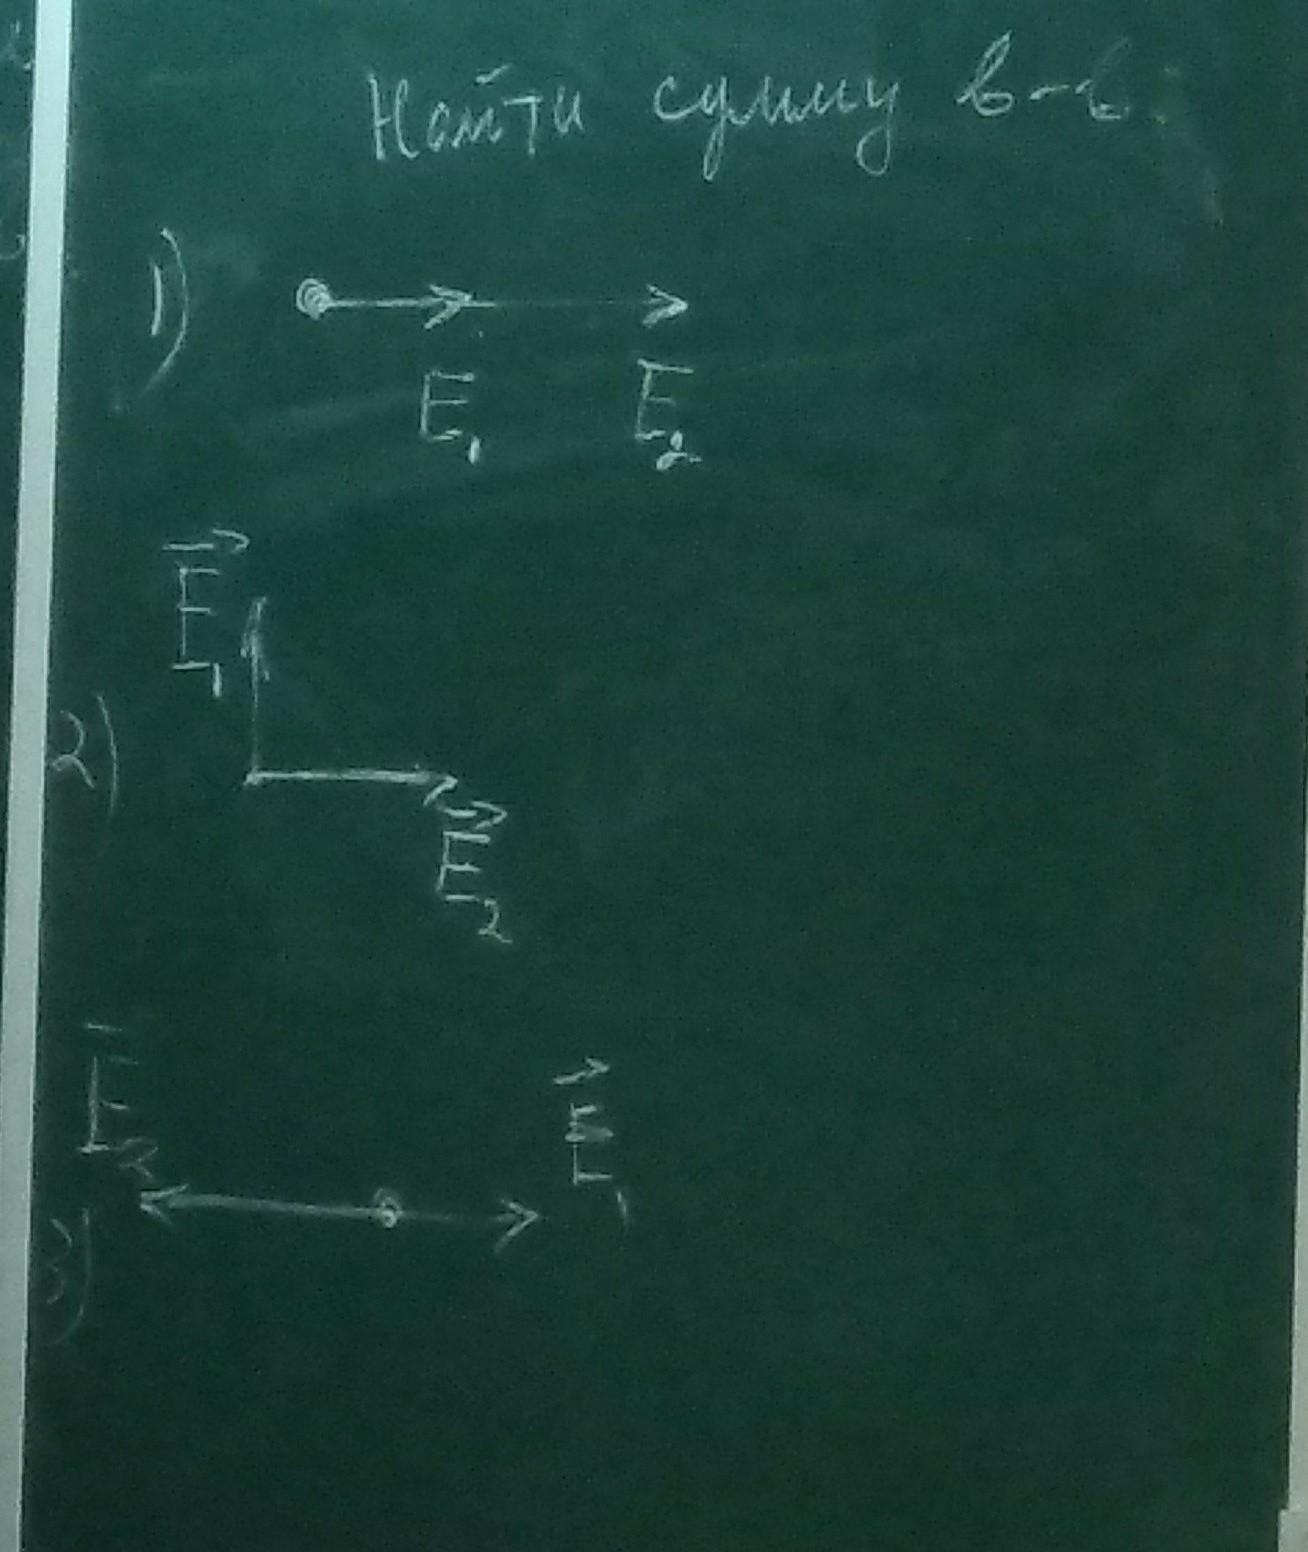 Найти сумму в-в:
1)
E₁ E₂
E₁
2)
E₂
E₂ E₁
3)